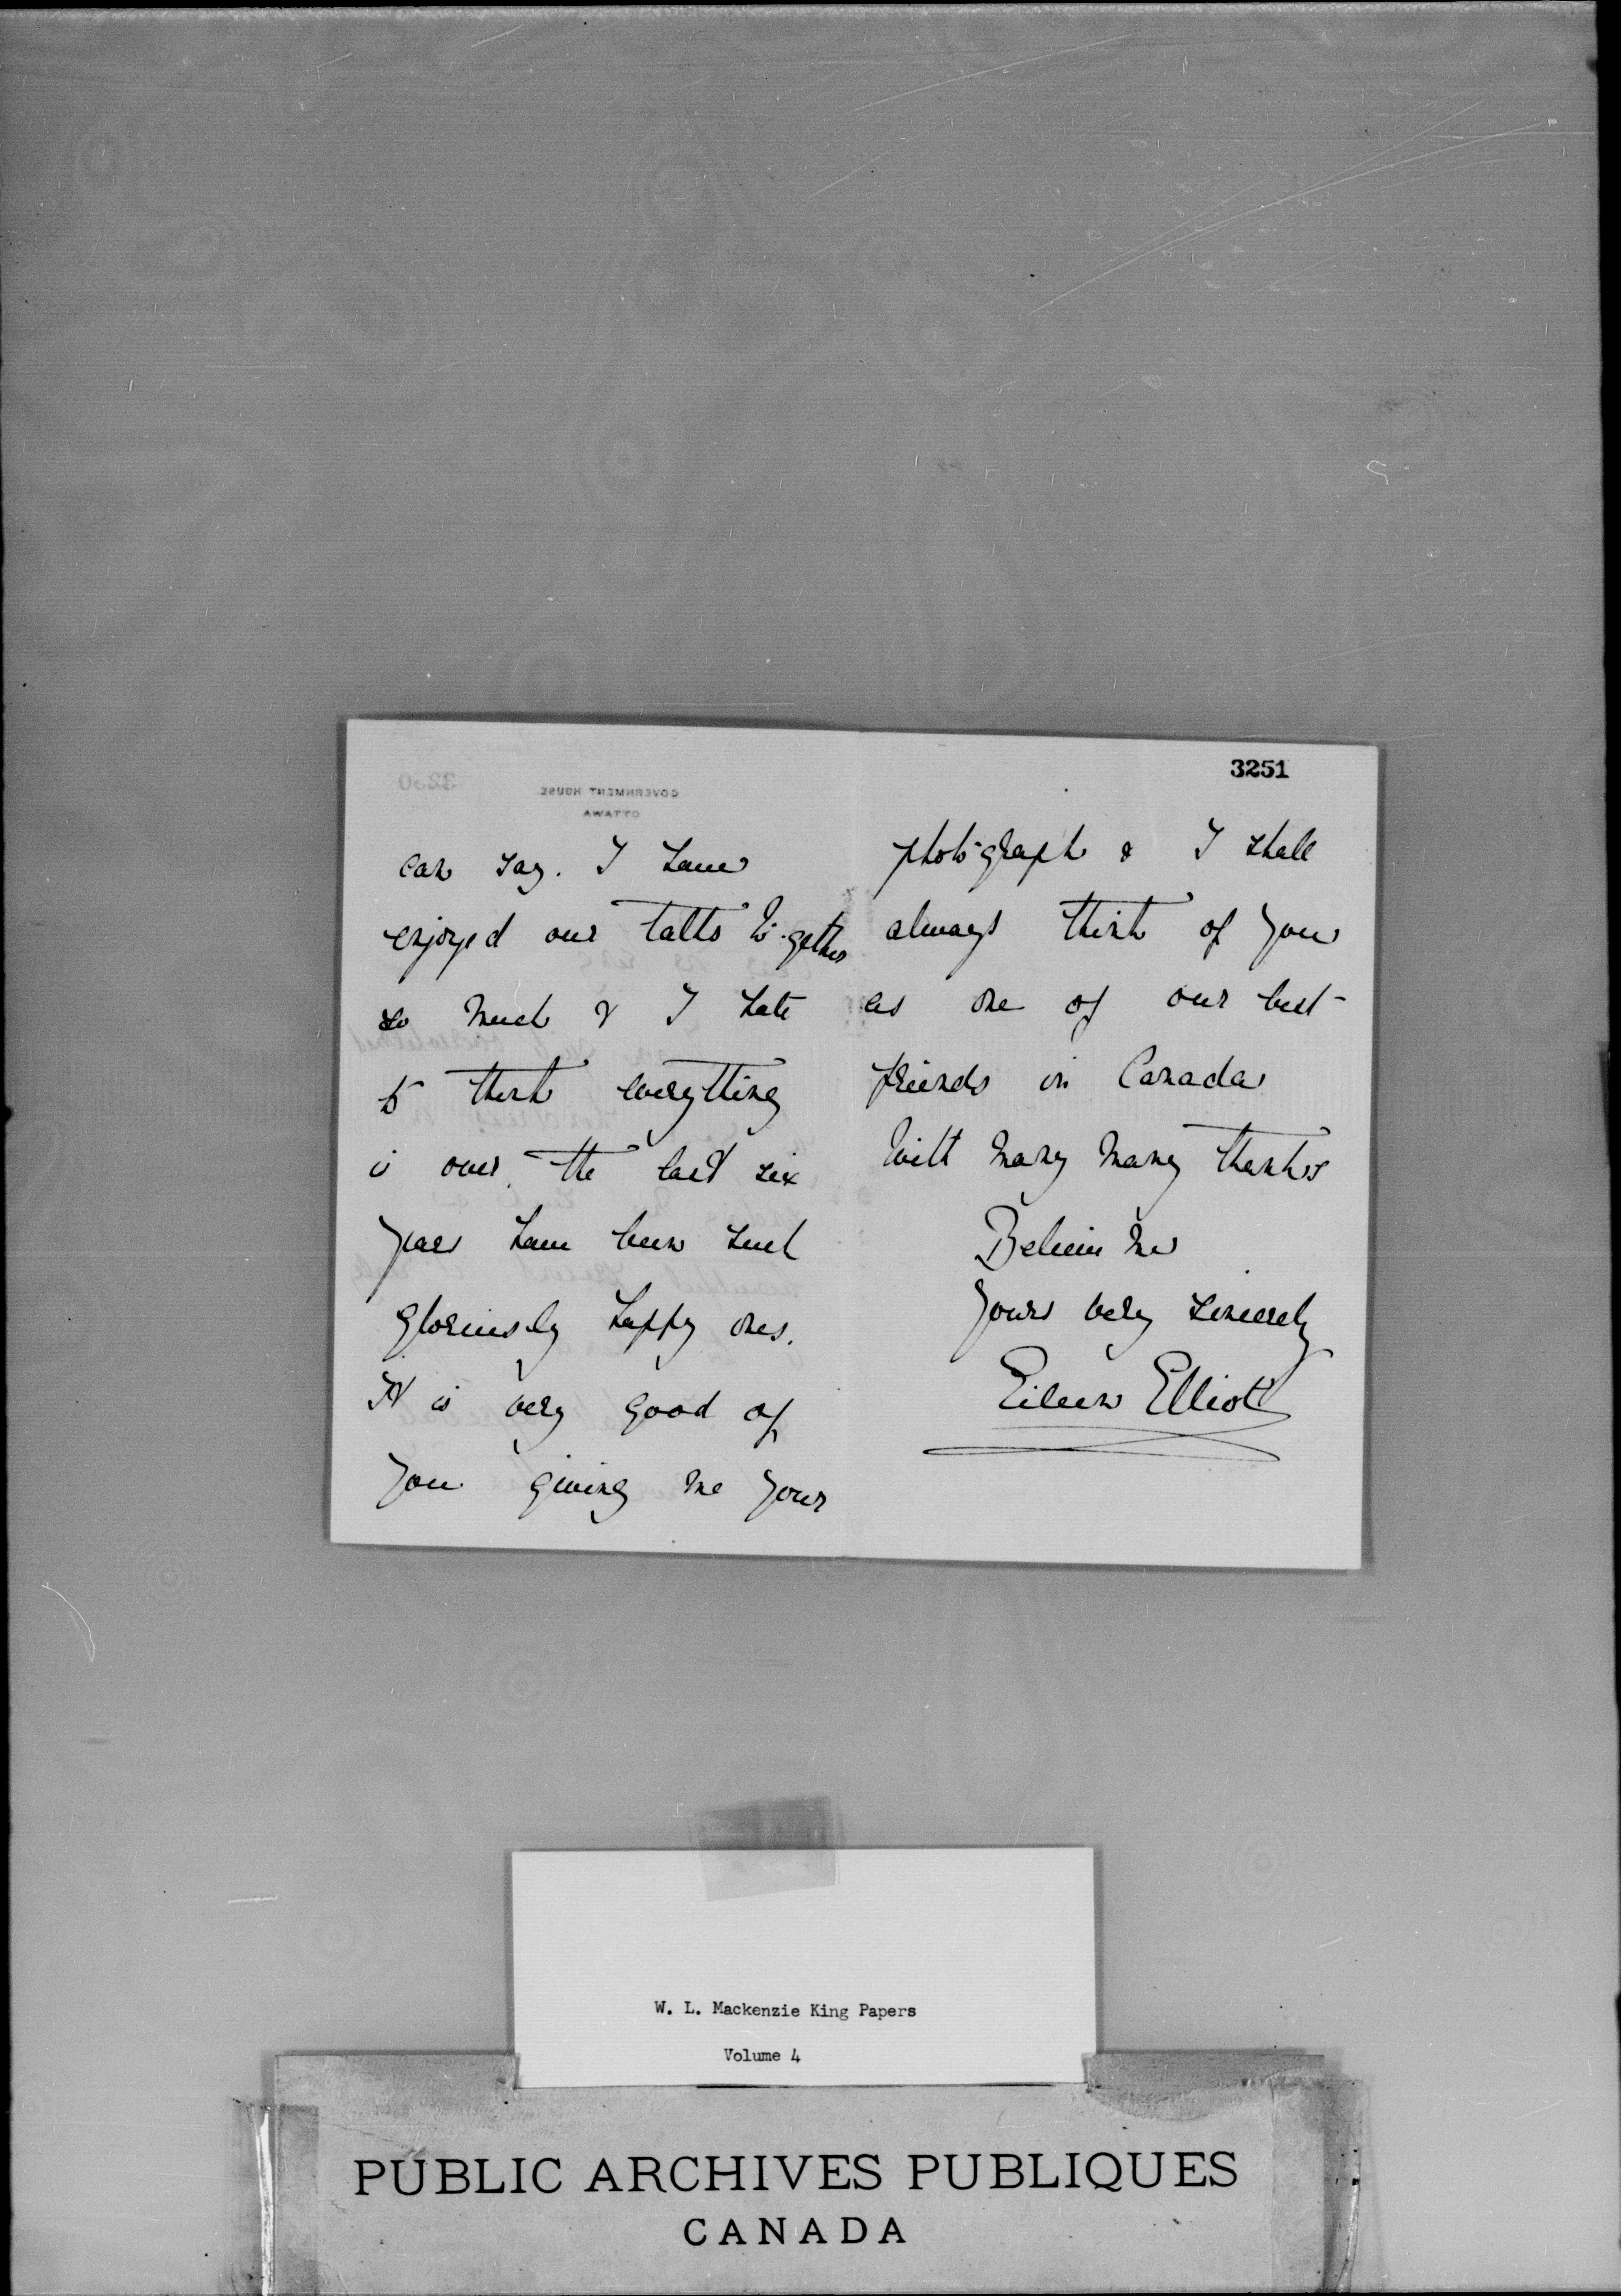 3251
can say. I have
enjoyed our talks to-gether
so much & I hate
to think everything
is over. The last six
years have been such
gloriously happy ones.
It is very good of
you giving me your
photo-graph & I shall
always think of you
as one of our best
friends in Canada
With many many thanks
Believe me
Yours very sincerely
Eileen Elliot
W. L. Mackenzie King Papers
Volume 4
PUBLIC ARCHIVES PUBLIQUES
CANADA